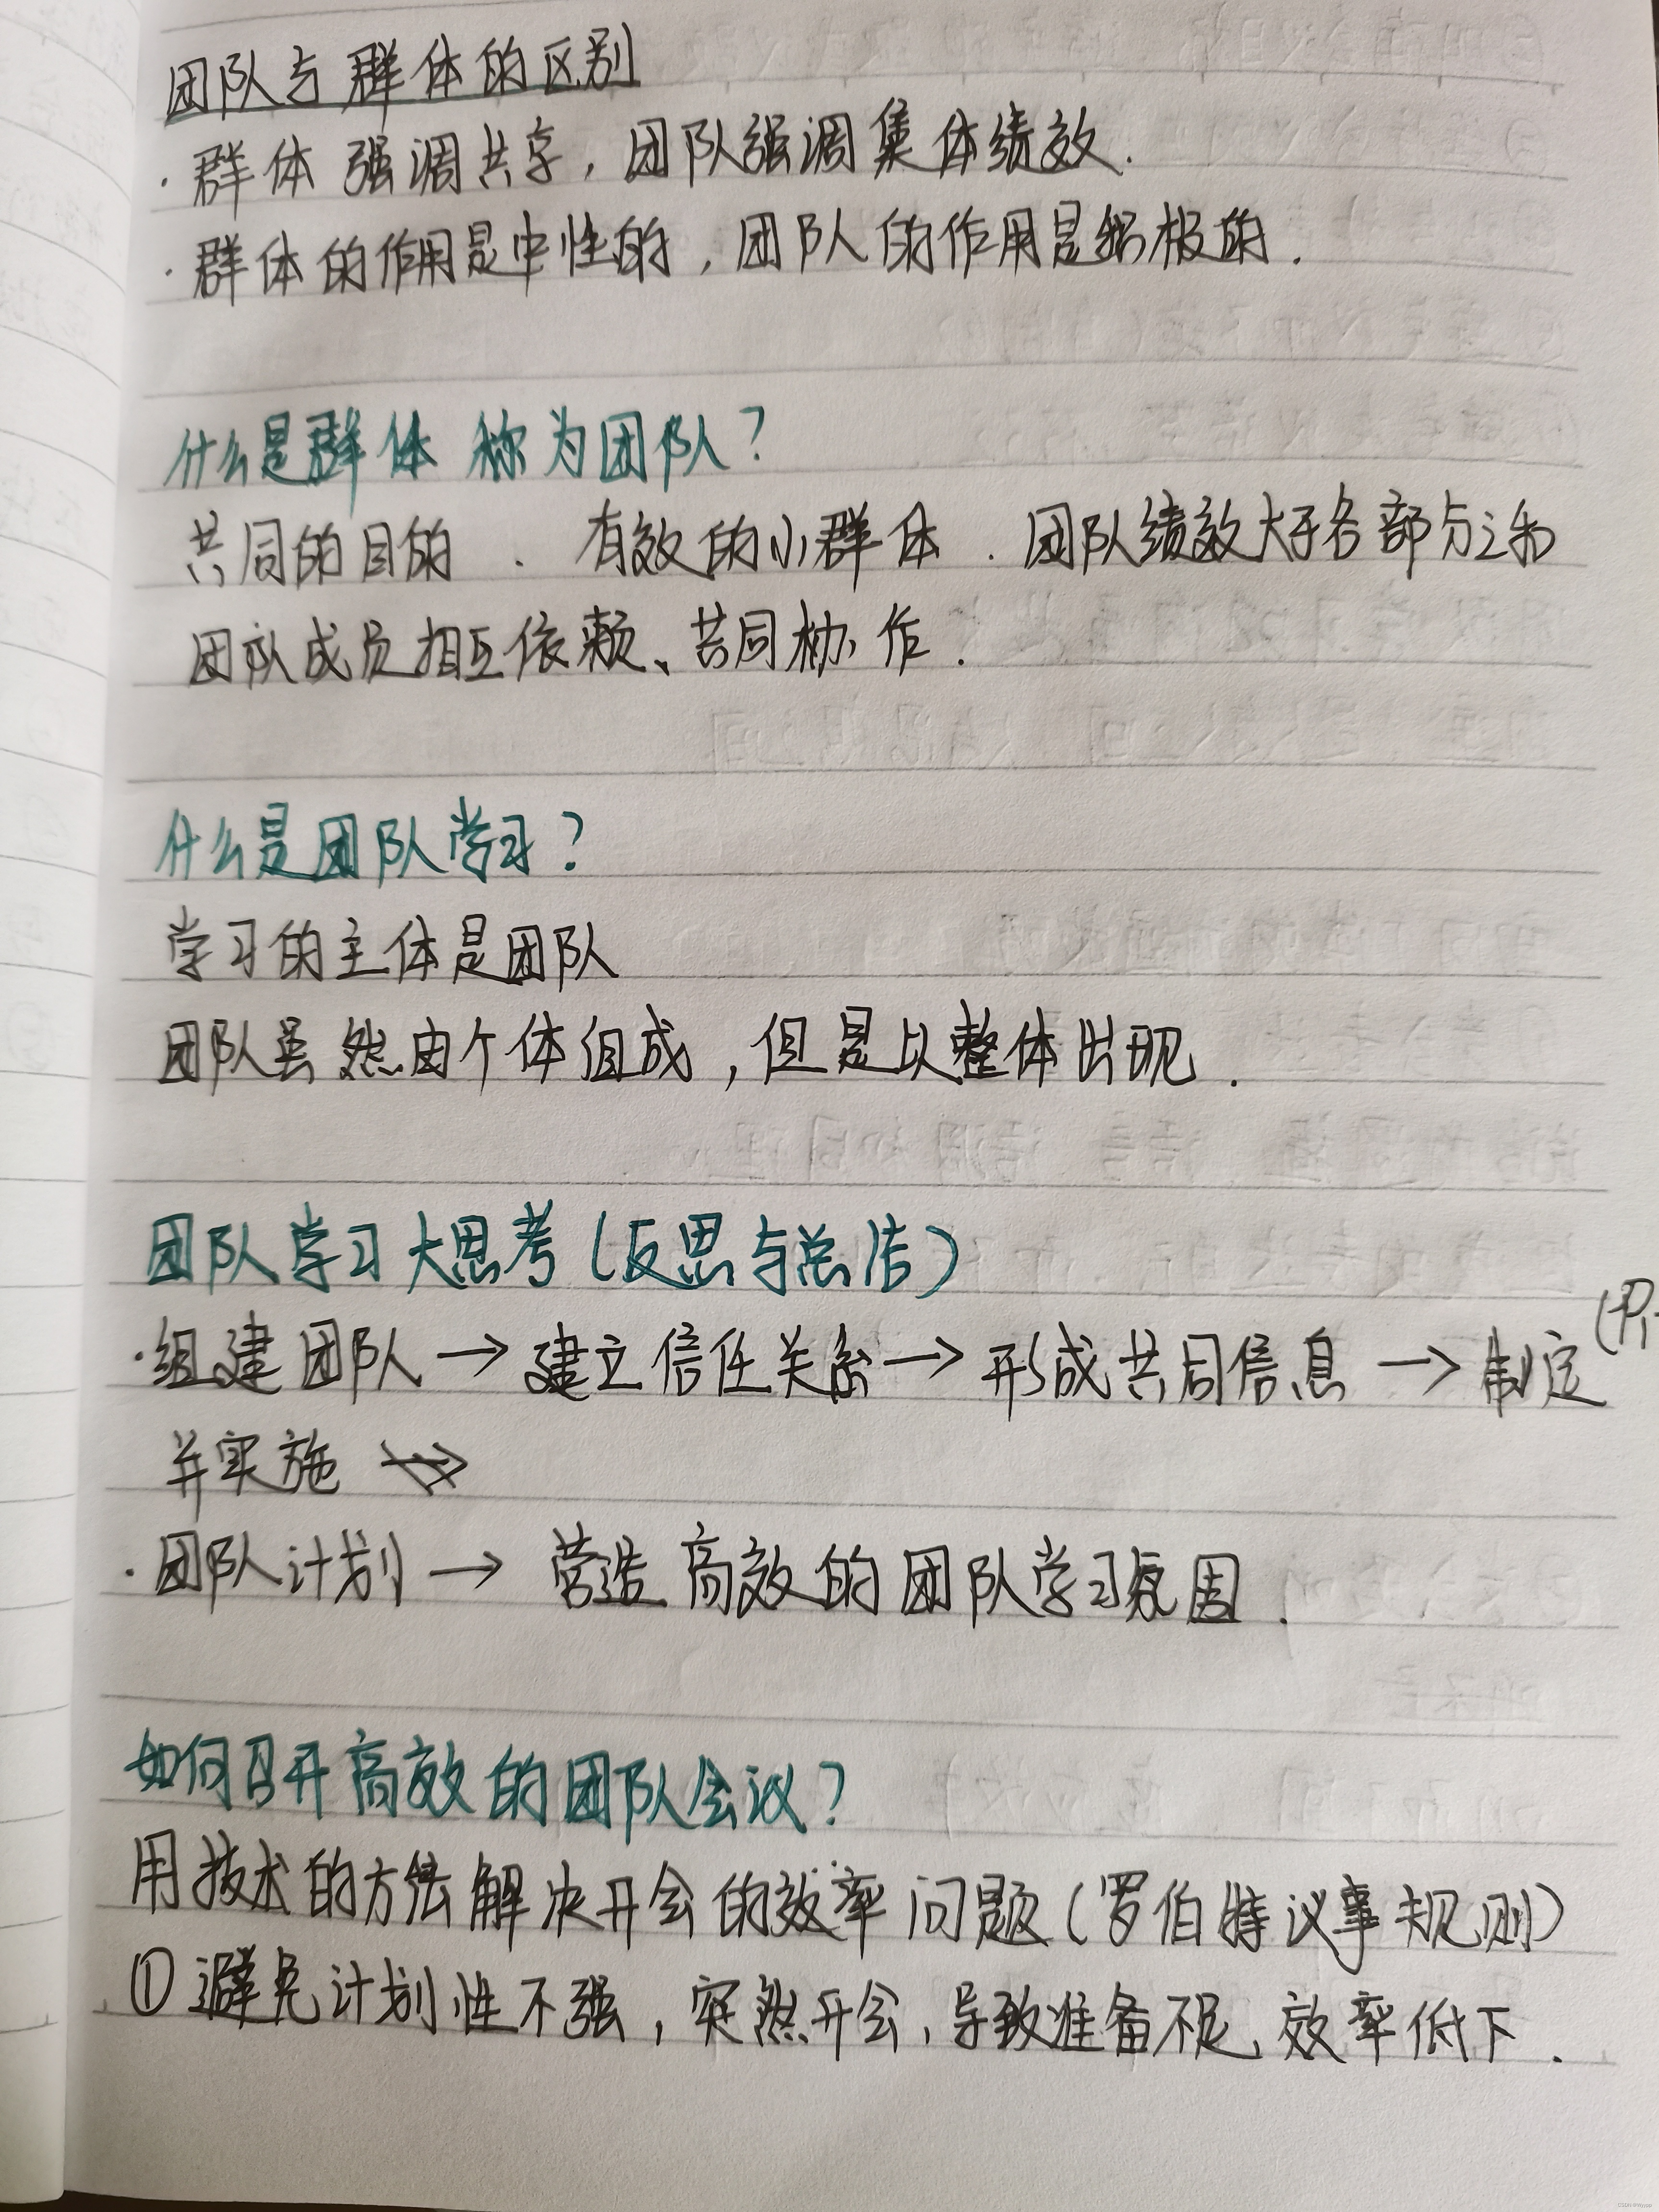 团队与群体的区别
·群体强调共享，团队强调集体绩效.
·群体的作用是中性的，团队的作用是积极的.
什么是群体 称为团队?
共同的目的 . 有效的小群体 . 团队绩效大于各部分之和
团队成员相互依赖、共同协作.
什么是团队学习?
学习的主体是团队
团队虽然由个体组成，但是以整体出现.
团队学习大思考(反思与总结)
·组建团队→建立信任关系→形成共同信息→制定
并实施
·团队计划→ 营造高效的团队学习氛围.
如何召开高效的团队会议?
用技术的方法解决开会的效率问题(罗伯特议事规则)
①避免计划性不强，突然开会，导致准备不足、效率低下.